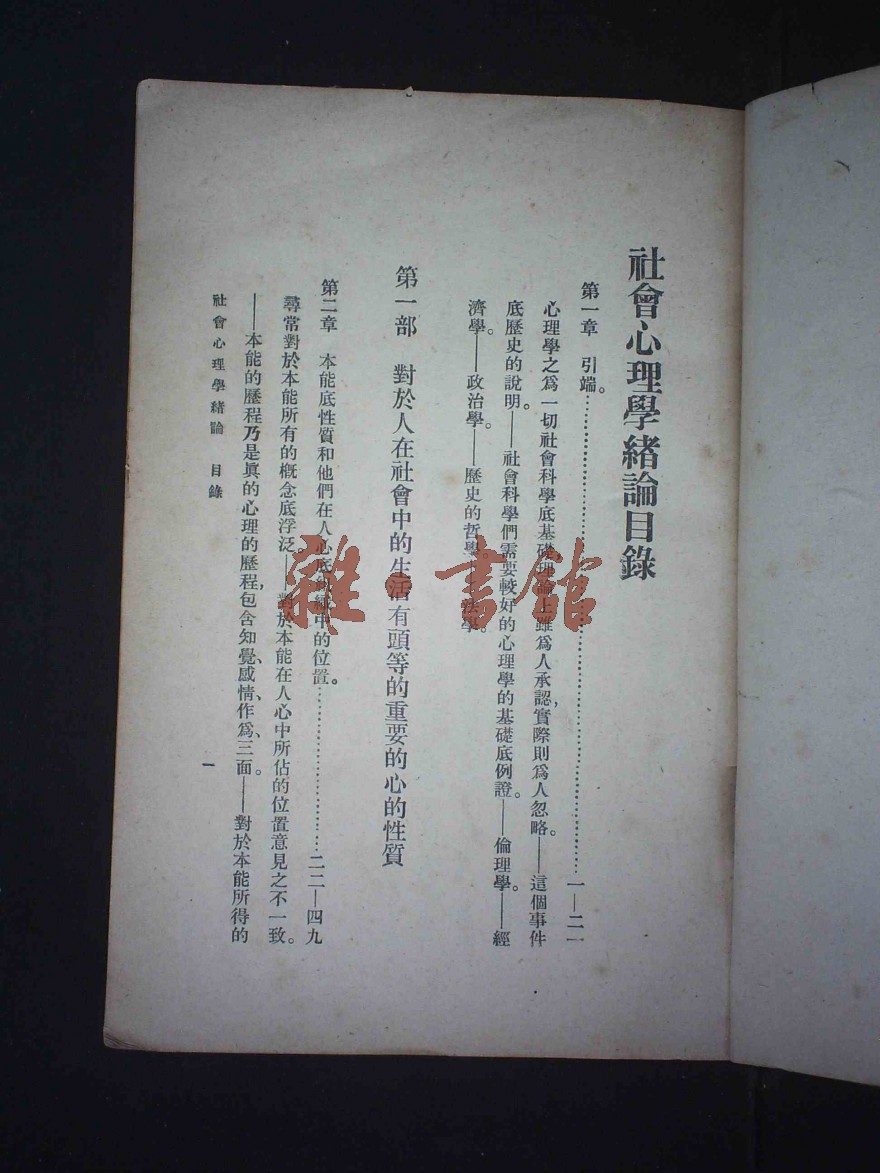 社會心理學緒論目錄
第一章　引端。……一—二一
心理學之爲一切社會科學底基礎,理論上雖爲人承認,實際則爲人忽略。——這個事件
底歷史的說明。——社會科學們需要較好的心理學的基礎底例證。——倫理學。——經
濟學。——政治學。——歷史的哲學。——法學。
第一部　對於人在社會中的生活有頭等的重要的心的性質
第二章　本能底性質和他們在人心底組織中的位置。……二二—四九
尋常對於本能所有的概念底浮泛——對於本能在人心中所佔的位置意見之不一致。
——本能的歷程乃是眞的心理的歷程,包含知覺、感情、作爲、三面。——對於本能所得的
社會心理學緒論　目錄
一
雜·書館